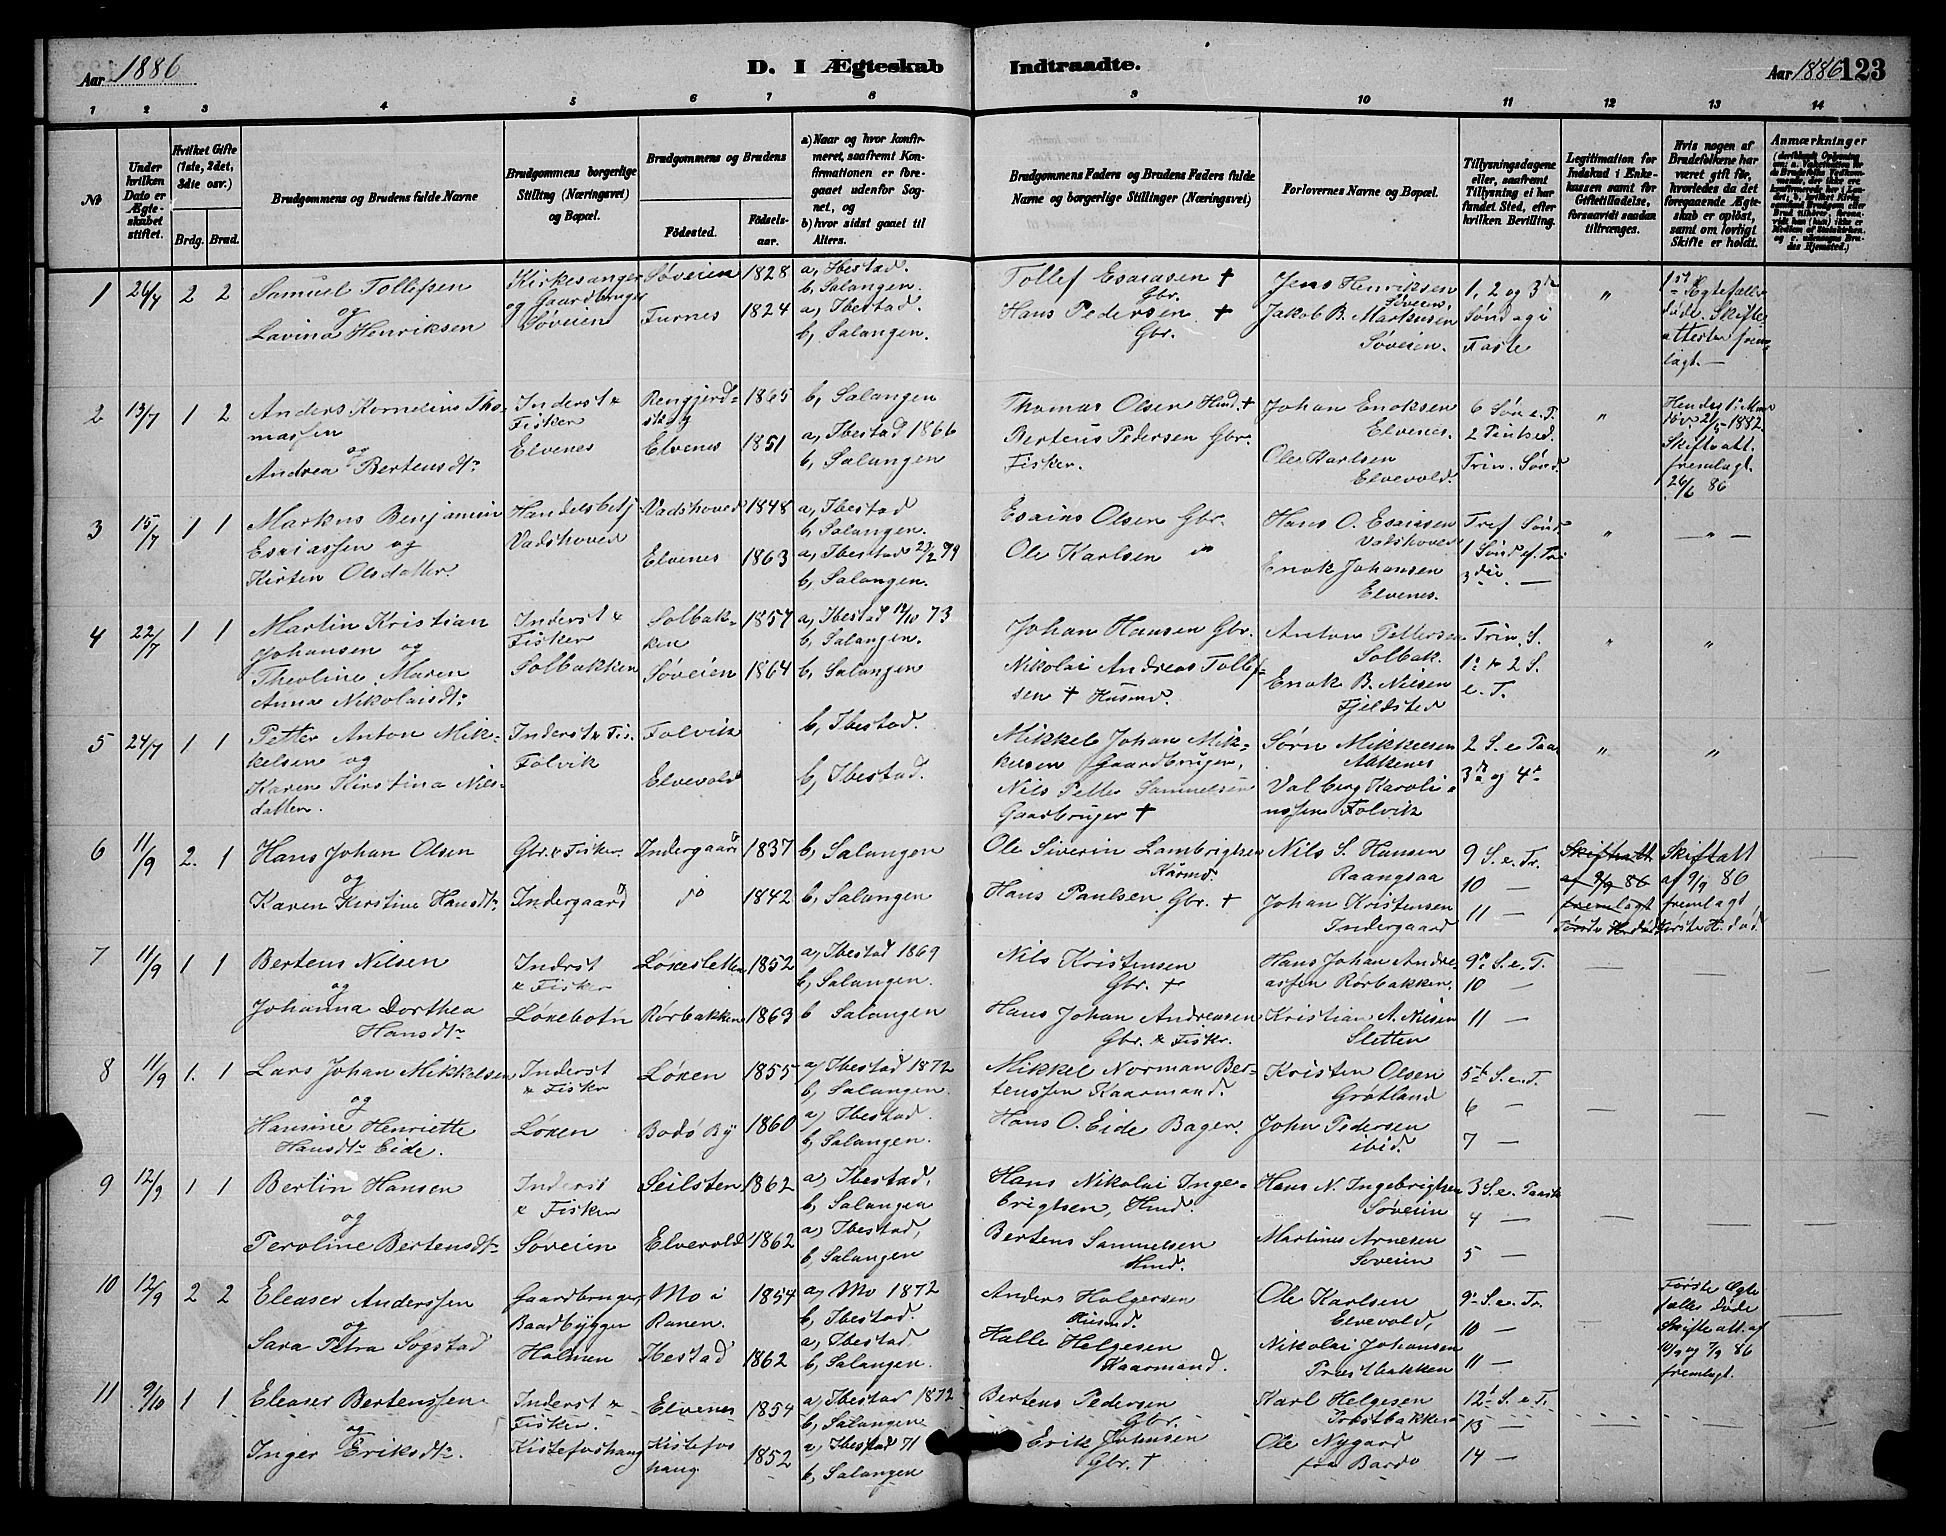 Aar 1886
D. I Ægteskab Indtraadte.
Aar 1886 123
1 2 3 4 5 6 7 8 9 10 11 12 13 14
No
Under hvilken Dato er Ægteskabet stiftet.
Hvilket Gifte (1ste, 2det, 3die osv.)
Brdg. Brud.
Brudgommens og Brudens fulde Navne
Brudgommens borgerlige Stilling (Næringsvei) og Bopæl.
Brudgommens og Brudens
Födested.
Födselsaar.
a) Naar og hvor konfirmeret, saafremt Konfirmationen er foregaaet udenfor Sognet, og
b) hvor sidst gaaet til Alters.
Brudgommens Faders og Brudens Faders fulde Navne og borgerlige Stillinger (Næringsvei)
Forlovernes Navne og Bopæl.
Tillysningsdagene eller, saafremt Tillysning ei har fundet Sted, efter hvilken Bevilling.
Legitimation for Indskud i Enkekassen samt for Giftetilladelse, forsaavidt saadan tiltrænges.
Hvis nogen af Brudefolkene har været gift før, hvorledes da det foregaaende Ægteskab er oplöst, samt om lovligt Skifte er holdt.
Anmærkninger
1 26/4 2 2 Samuel Tollefsen
og
Lavina Henriksen
Kirkesanger
og Gaardbruger
Søveien
Søveien 1828 a, Ibestad.
b, Salangen.
Furnes 1824 a, Ibestad.
b, Salangen.
Tollef Esaiasen +
Gbr.
Hans Pedersen +
Gbr.
Jens Henriksen
Søveien,
Jakob B. Markusen
Søveien.
1, 2 og 3die
Søndag i
Faste
"
1ste Ægtefælle
død. Skifteattester fremlagt. —
2 13/7 1 2 Anders Kornelius Thomassen
og
Andrea Bertensdtr
Inderst &
Fisker
Elvenes
Rengjerdskog 1865 b, Salangen
Elvenes 1851 a, Ibestad 1866
b, Salangen
Thomas Olsen Hmd. +
Berteus Pedersen Gbr.
Fisker.
Johan Enoksen
Elvenes.
Ole Karlsen
Elvevold.
6 Søn e. P.
2 Pintsed.
Trin. Sønd.
"
Hendes 1. Mand
døv. 21/5 - 1882
Skifteatt.
fremlagt.
26/6 86
3 15/7 1 1 Markus Benjamin
Esaiassen og
Kirten Olsdatter.
Handelsbetj
Vadshoved
Vadshoved 1848 a, Ibestad
b, Salangen.
Elvenes 1863 a, Ibestad 23/2 79
b, Salangen.
Esaias Olsen Gbr.
Ole Karlsen "
Hans O. Esaiasen
Vadshoved
Enok Johansen
Elvenes.
Tref. Sønd
1 Sønd ef. Tri
3die —
"
— " —
4 22/7 1 1 Martin Kristian
Johansen og
Theoline Maren
Anna Nikolaisdtr
Inderst &
Fisker
Solbakken
Solbakken 1857 a, Ibestad 12/10 73
b, Salangen.
Søveien 1864 b, Salangen
Johan Hansen Gbr.
Nikolai Andreas Tollefsen + Husmd.
Anton Pettersen
Solbak.
Enok B. Nilsen
Fjeldsted
Trin. S.
1e & 2 S.
e. T.
" "
5 24/7 1 1 Petter Anton Mikkelsen og
Karen Kirstina Nilsdatter.
Inderst & Fis.
Folvik
Folvik b, Ibestad.
Elvevold b, Ibestad.
Mikkel Johan Mikkelsen Gaardbruger,
Nils Petter Samuelsen
Gaardbruger +
Sørn Mikkelsen
Aakenes
Valberg Karolianssen Folvik
2 S. e Paas
3de og 4de
" "
6 11/9 2. 1 Hans Johan Olsen
og
Karen Kirstine Hansdtr
Gbr. & Fisker.
Indergaard
Indergaard 1837 b, Salangen
do 1842 b, Salangen
Ole Siverin Lambrigtsen
Kårmd.
Hans Paulsen Gbr. +
Nils S. Hansen
Raangsaa
Johan Kristensen
Indergaard
9 S. e. Tr.
10 —
11 —
Skifteatt.
af 9/9 86
fremlagt
Første H. død
Skifteatt
af 9/9 86
fremlagt
første H. død.
7 11/9 1 1 Bertens Nilsen
og
Johanna Dorthea
Hansdtr
Inderst
& Fisker
Løxebotn
Løxesletten 1852 a, Ibestad 1869
b, Salangen.
Rørbakken 1863 b Salangen
Nils Kristensen
Gbr. +
Hans Johan Andreasen
Gbr. & Fiskr.
Hans Johan Andreassen Rørbakken.
Kristian A. Nilsen
Sletten
9de S. e. T.
10 —
11 —
8 11/9 1. 1 Lars Johan Mikkelsen
og
Hansine Henriette
Hansdtr Eide.
Inderst
& Fiskr
Løxen
Løxen 1855 a, Ibestad 1872
b, Salangen.
Bodø By 1860 a) Ibestad.
b, Salangen.
Mikkel Norman Bertenssen Kaarmand.
Hans O. Eide Bager.
Kristen Olsen
Grøtland
John Pedersen
ibid.
5te S. e. T.
6 —
7 —
9 12/9 1 1 Bertin Hansen
og
Peroline Bertensdtr
Inderst
& Fisker
Søveien
Seilsten 1862 a, Ibestad,
b, Salangen
Elvevold 1862 a) Ibestad,
b, Salangen
Hans Nikolai Ingebrigtsen, Hmd.
Bertens Samuelsen
Hmd.
Hans N. Ingebrigtsen
Søveien
Martinus Arnesen
Søveien
3 S. e. Paaske
4 —
5 —
10 12/9 2 2 Eleaser Anderssen
og
Sara Petra Sogstad
Gaardbruger,
Baadbygger
Holmen
Mo i
Ranen. 1854 a, Mo 1872
b, Ibestad.
Ibestad 1862 a, Ibestad,
b, Salangen.
Anders Holgersen
Husmd.
Halle Helgesen
Kaarmand.
Ole Karlsen
Elvevold,
Nikolai Johansen
Præstbakken
9de S. e. Tr.
10 —
11 —
Første Ægtefælle Døde
Skifteatt. af
10/9 og 7/9 86
fremlagt.
11 9/10 1 1 Eleaser Bertenssen
og
Inger Eriksdtr.
Inderst &
Fisker.
Kistefoshaug
Elvenes 1854 a, Ibestad 1872
b, Salangen
Kistefoshaug 1852 a, Ibestad 71
b, Salangen
Bertens Pedersen
Gbr.
Erik Johnsen
Gbr. +
Karl Helgesen
Ole Nygaard
fra Bardo
12te S. e. T.
13 —
14 —